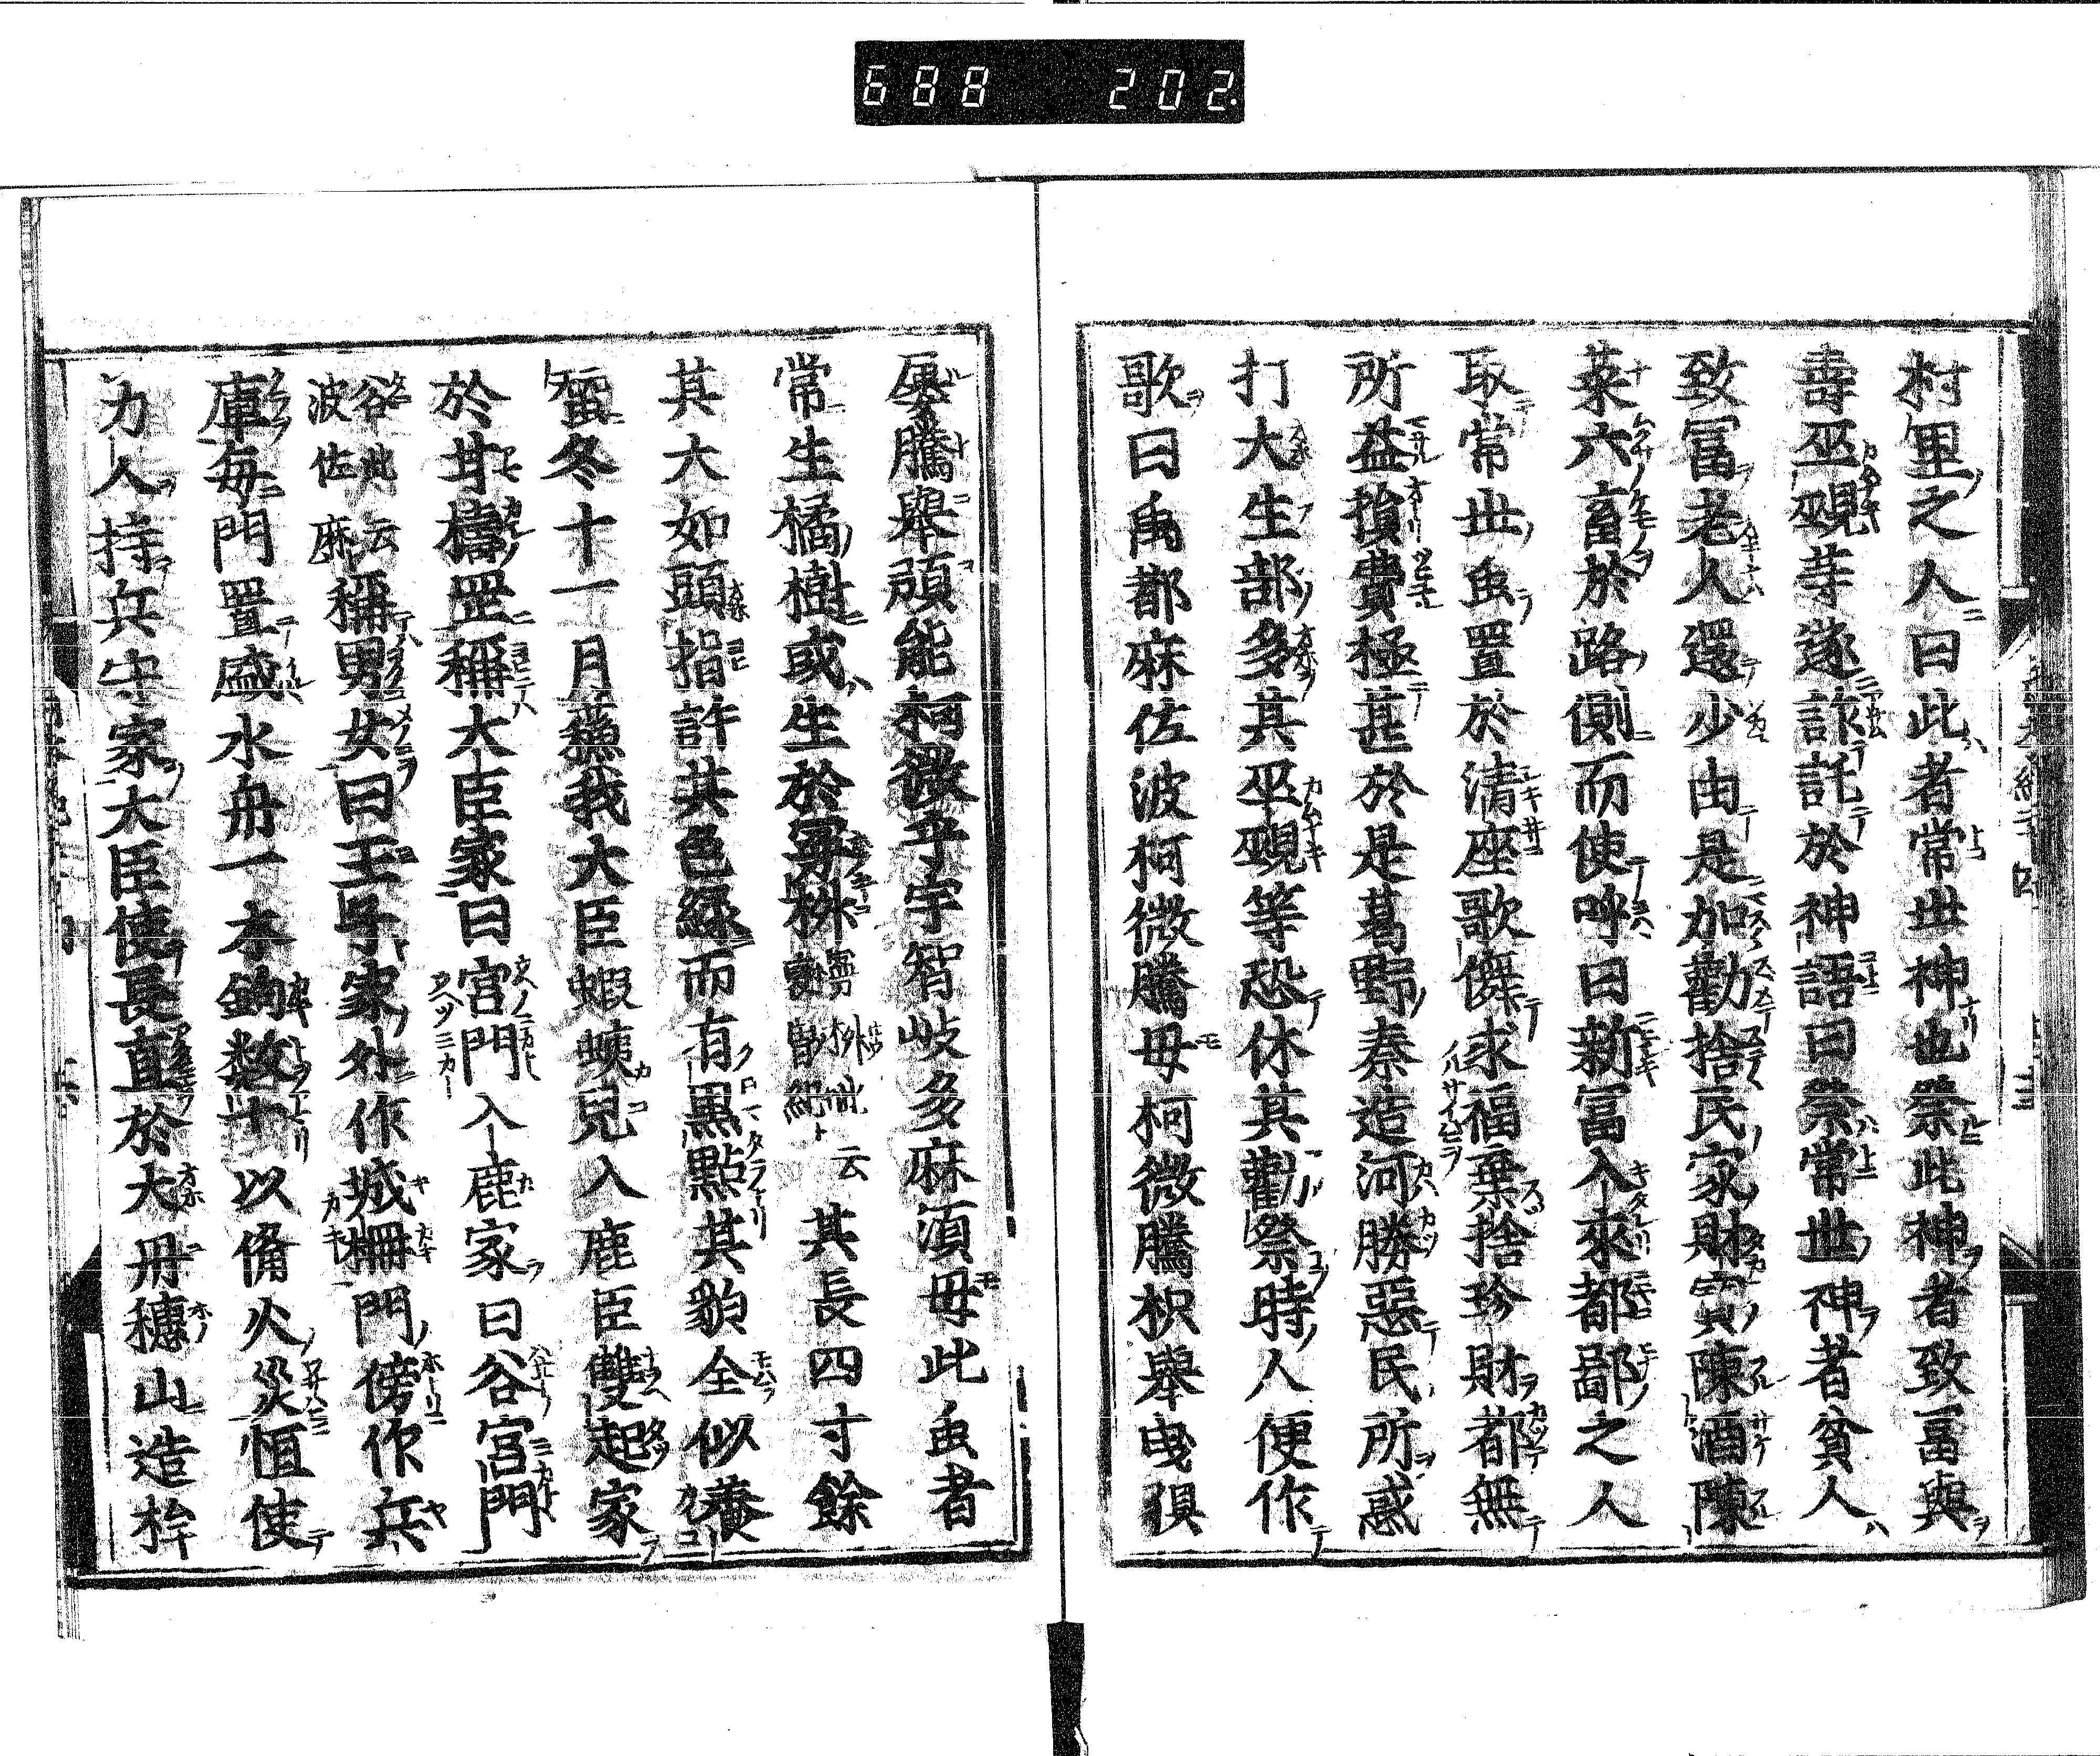 688 202.
村里之人曰此者常世神也祭此神者致冨與
壽巫覡等遂詐託於神語曰祭常世神者貧人
致冨老人還少由是加勸捨民家財寳陳酒陳
菜六畜於路側而使呼曰新冨入來都鄙之人
取常世虫置於清座歌儛求福棄捨珍財都無
所益損費極甚於是葛野秦造河勝惡民所惑
打大生部多其巫覡等恐休其勸祭時人便作
歌曰禹都麻佐波柯微騰毋柯微騰枳擧曳倶
屢騰擧預能柯微乎宇智岐多麻湏毋此虫者
常生橘樹或生於曼椒曼椒此云褒曾紀其長四寸餘
其大如頭指許其色緑而有黒點其貌全似養
蚕冬十一月蘓我大臣蝦蛦兒入鹿臣雙起家
於甘檮罡稱大臣家曰宮門入鹿家曰谷宮門
谷此云波佐麻稱男女曰王子家外作城柵門傍作兵
庫毎門置盛水舟一木鉤数十以備火災恒使
力人持兵守家大臣使長直於大丹穗山造桙